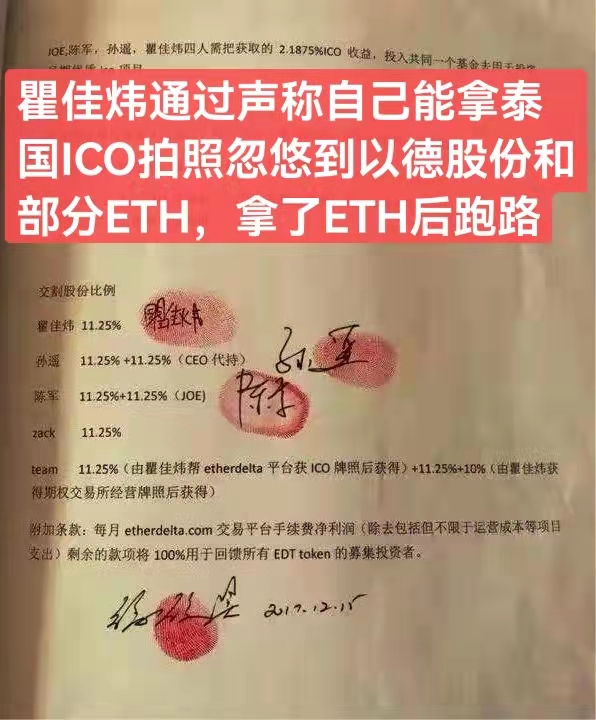 JOE,陈军，孙遥，瞿佳炜四人需把获取的 2.1875%ICO 收益，投入共同一个基金去用于投资
瞿佳炜通过声称自己能拿泰
国ICO拍照忽悠到以德股份和
部分ETH，拿了ETH后跑路
交割股份比例
瞿佳炜 11.25% 瞿佳炜
孙遥 11.25% +11.25%（CEO 代持） 孙遥
陈军 11.25%+11.25%（JOE) 陈军
zack 11.25%
team 11.25%（由瞿佳炜帮 etherdelta 平台获 ICO 牌照后获得）+11.25%+10%（由瞿佳炜获
得期权交易所经营牌照后获得）
附加条款：每月 etherdelta.com 交易平台手续费净利润（除去包括但不限于运营成本等项目
支出）剩余的款项将 100%用于回馈所有 EDT token 的募集投资者。
2017.12.15